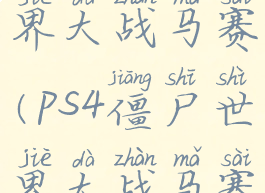 jiè dà zhàn mǎ sài
界大战马赛
jiāng shī shì
(PS4僵尸世
jiè dà zhàn mǎ sài
界大战马赛